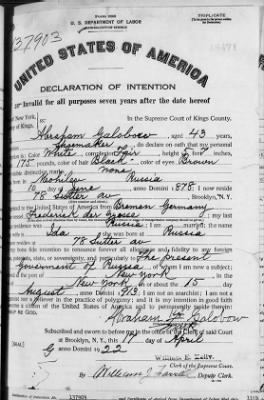 U. S. DEPARTMENT OF LABOR
TRIPLICATE
137903
UNITED STATES OF AMERICA
DECLARATION OF INTENTION
Invalid for all purposes seven years after the date hereof
New York,
of Kings,
In the Supreme Court of Kings County.
Abraham Galobow, aged 43 years,
occupation Shoemaker, do declare on oath that my personal
Color White, complexion Fair, height 5 feet inches,
175 pounds, color of hair Black, color of eyes Brown
none
Mohilev Russia
10 June, anno Domini 1878; I now reside
Sutter av, Brooklyn, N. Y.
United States of America from Bremen Germany
Frederick der Grosse; my last
residence was Russia; I am married; the name
Ida; she was born at Russia
78 Sutter av
bona fide intention to renounce forever all allegiance and fidelity to any foreign
prince, potentate, state, or sovereignty, and particularly to The present
Government of Russia, of whom I am now a subject;
New York
New York on or about the 15 day
August, anno Domini 1913; I am not an anarchist; I am not a
polygamist nor a believer in the practice of polygamy; and it is my intention in good faith
to become a citizen of the United States of America and to permanently reside therein:
SO HELP ME GOD.
Abraham Galobow
Subscribed and sworn to before me in the office of the Clerk of said Court
at Brooklyn, N. Y., this 17 day of April
anno Domini 1922
[SEAL]
William E. Kelly,
Clerk of the Supreme Court.
By
Deputy Clerk.
137903